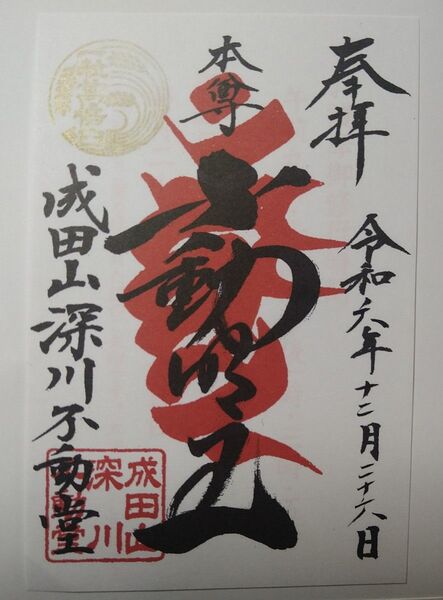 奉拝
令和六年十二月二十六日
本尊
不動明王
成田山深川不動堂
成田山
深川
不動堂